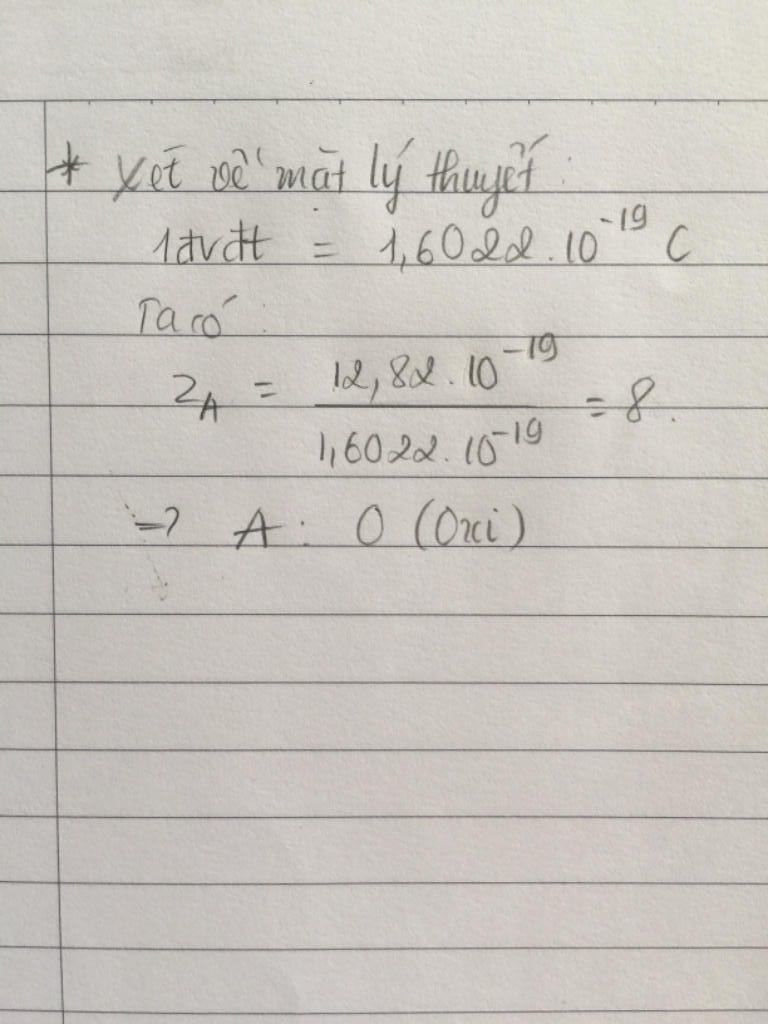 * Xét về mặt lý thuyết :
1đvđt = 1,6022.10⁻¹⁹ C
Ta có :
Z_A = 12,82.10⁻¹⁹ / 1,6022.10⁻¹⁹ = 8.
=> A : O (Oxi)